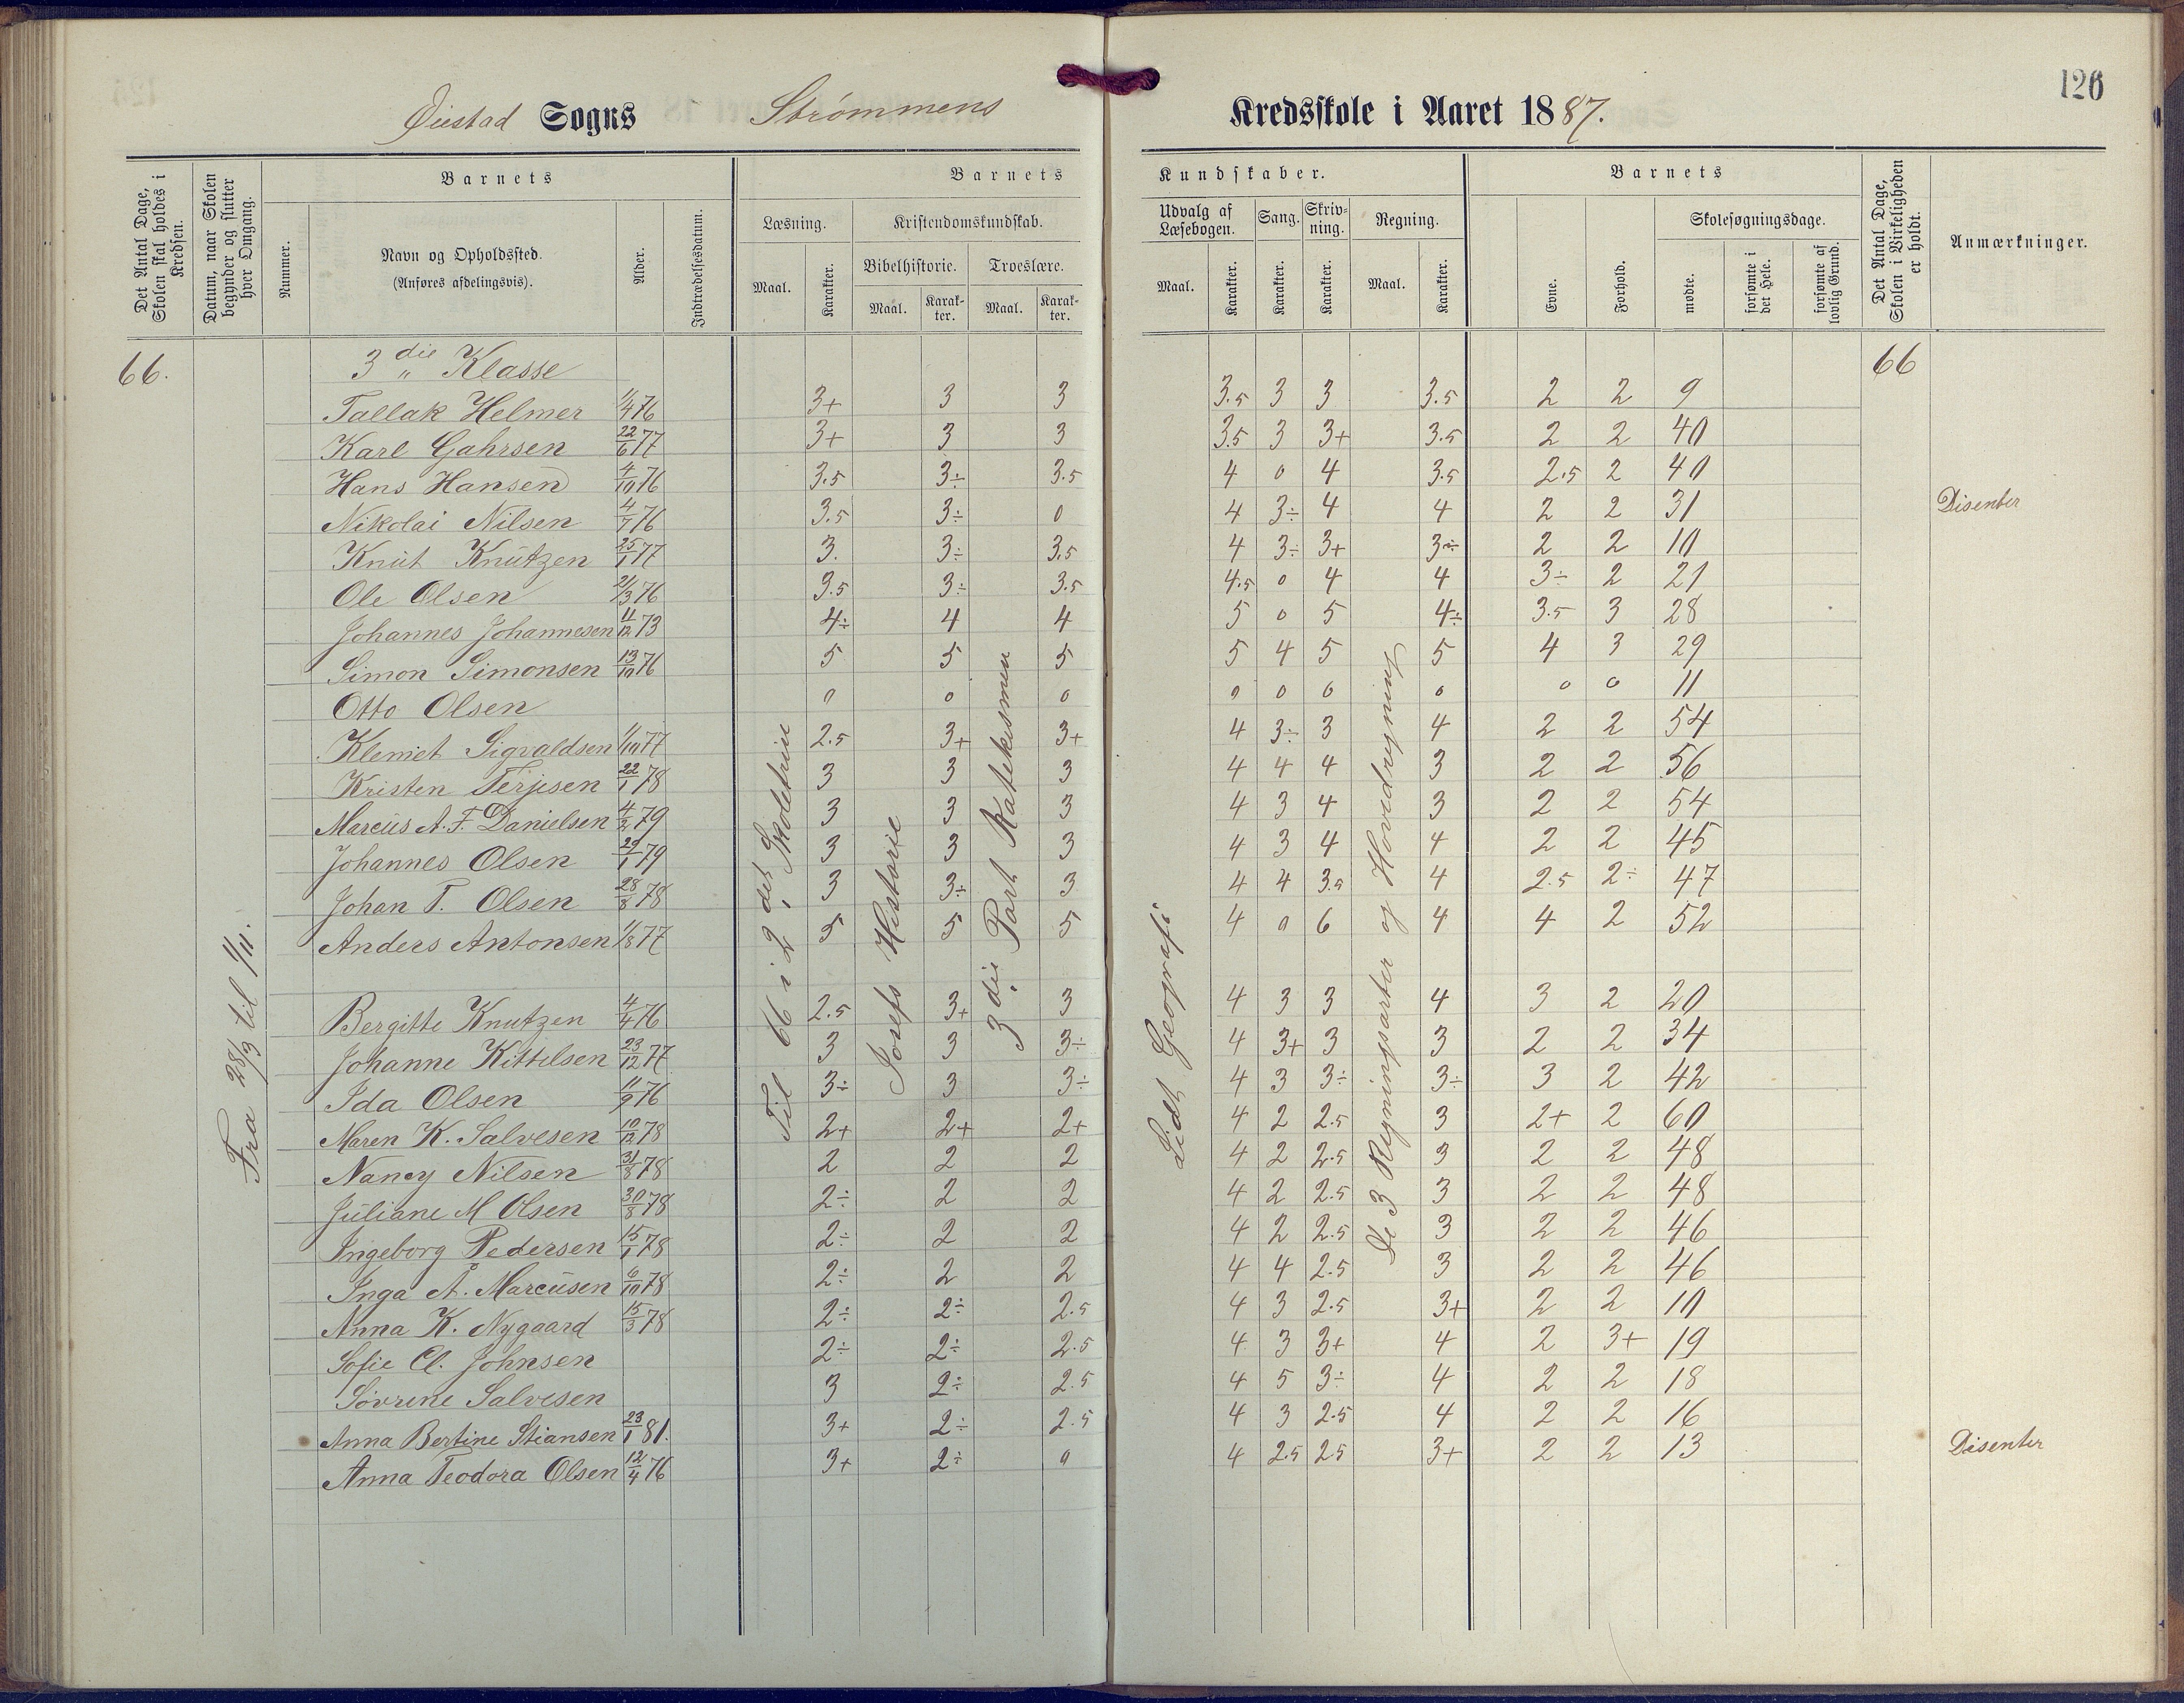 126
Øiestad Sogns Strømmens Kredsskole i Aaret 1887.
Det Antal Dage, Skolen skal holdes i Kredsen.
Datum, naar Skolen begynder og slutter hver Omgang.
Nummer.
Barnets
Navn og Opholdssted.
(Anføres afdelingsvis).
Alder.
Indtrædelsesdatum.
Barnets Kundskaber.
Læsning.
Maal. Karakter.
Kristendomskundskab.
Bibelhistorie. Troeslære.
Maal. Karakter. Maal. Karakter.
Udvalg af Læsebogen. Sang. Skrivning. Regning.
Maal. Karakter. Karakter. Karakter. Maal. Karakter.
Barnets
Evne. Forhold.
Skolesøgningsdage.
mødte. forsømte i det Hele. forsømte af lovlig Grund.
Det Antal Dage, Skolen i Virkeligheden er holdt.
Anmærkninger.
66. 3die Klasse 66
Tallak Helmer 1/4 76 3+ 3 3 3.5 3 3 3.5 2 2 9
Karl Gahrsen 22/6 77 3+ 3 3 3.5 3 3+ 3.5 2 2 40
Hans Hansen 4/10 76 3.5 3÷ 3.5 4 0 4 3.5 2.5 2 40
Nikolai Nilsen 4/7 76 3.5 3÷ 0 4 3÷ 4 4 2 2 31 Disenter
Knut Knutzen 25/1 77 3. 3÷ 3.5 4 3÷ 3+ 3÷ 2 2 10
Ole Olsen 21/3 76 3.5 3÷ 3.5 4.5 0 4 4 3÷ 2 21
Johannes Johannesen 11/12 73 4÷ 4 4 5 0 5 4÷ 3.5 3 28
Simon Simonsen 13/10 76 5 5 5 5 4 5 5 4 3 29
Otto Olsen 0 0 0 0 0 0 0 0 0 11
Klemet Sigvaldsen 1/10 77 2.5 3+ 3+ 4 3÷ 3 4 2 2 54
Kristen Terjesen 22/1 78 3 3 3 4 4 4 3 2 2 56
Marcus A. F. Danielsen 4/2 79 3 3 3 4 3 4 3 2 2 54
Johannes Olsen 29/1 79 3 3 3 4 3 4 4 2 2 45
Johan T. Olsen 28/8 78 3 3÷ 3 4 4 3.5 4 2.5 2÷ 47
Anders Antonsen 1/8 77 5 5 5 4 0 6 4 4 2 52
Bergitte Knutzen 4/4 76 2.5 3+ 3 4 3 3 4 3 2 20
Johanne Kittelsen 23/12 77 3 3 3÷ 4 3+ 3 3 2 2 34
Ida Olsen 11/9 76 3÷ 3 3÷ 4 3 3÷ 3÷ 3 2 42
Maren K. Salvesen 10/12 78 2+ 2+ 2+ 4 2 2.5 3 2+ 2 60
Nancy Nilsen 31/8 78 2 2 2 4 2 2.5 3 2 2 48
Juliane M Olsen 30/8 78 2÷ 2 2 4 2 2.5 3 2 2 48
Ingeborg Pedersen 15/1 78 2÷ 2 2 4 2 2.5 3 2 2 46
Inga A. Marcusen 6/10 78 2÷ 2 2 4 4 2.5 3 2 2 46
Anna K. Nygaard 15/3 78 2÷ 2÷ 2.5 4 3 2.5 3+ 2 2 10
Sofie Cl. Johnsen 2÷ 2÷ 2.5 4 3 3+ 4 2 3+ 19
Sørrene Salvesen 3 2÷ 2.5 4 5 3÷ 4 2 2 18
Anna Bertine Stiansen 23/1 81. 3+ 2÷ 2.5 4 3 2.5 4 2 2 16
Anna Teodora Olsen 12/4 76 3+ 2÷ 0 4 2.5 2.5 3+ 2 2 13 Disenter
Fra 28/3 til 1/11.
Til 66 i 2det Skoletrin
Josefs Historie
3die Part Katekismen
Lidt Geografi
De 3 Regningsarter og Hovedregning